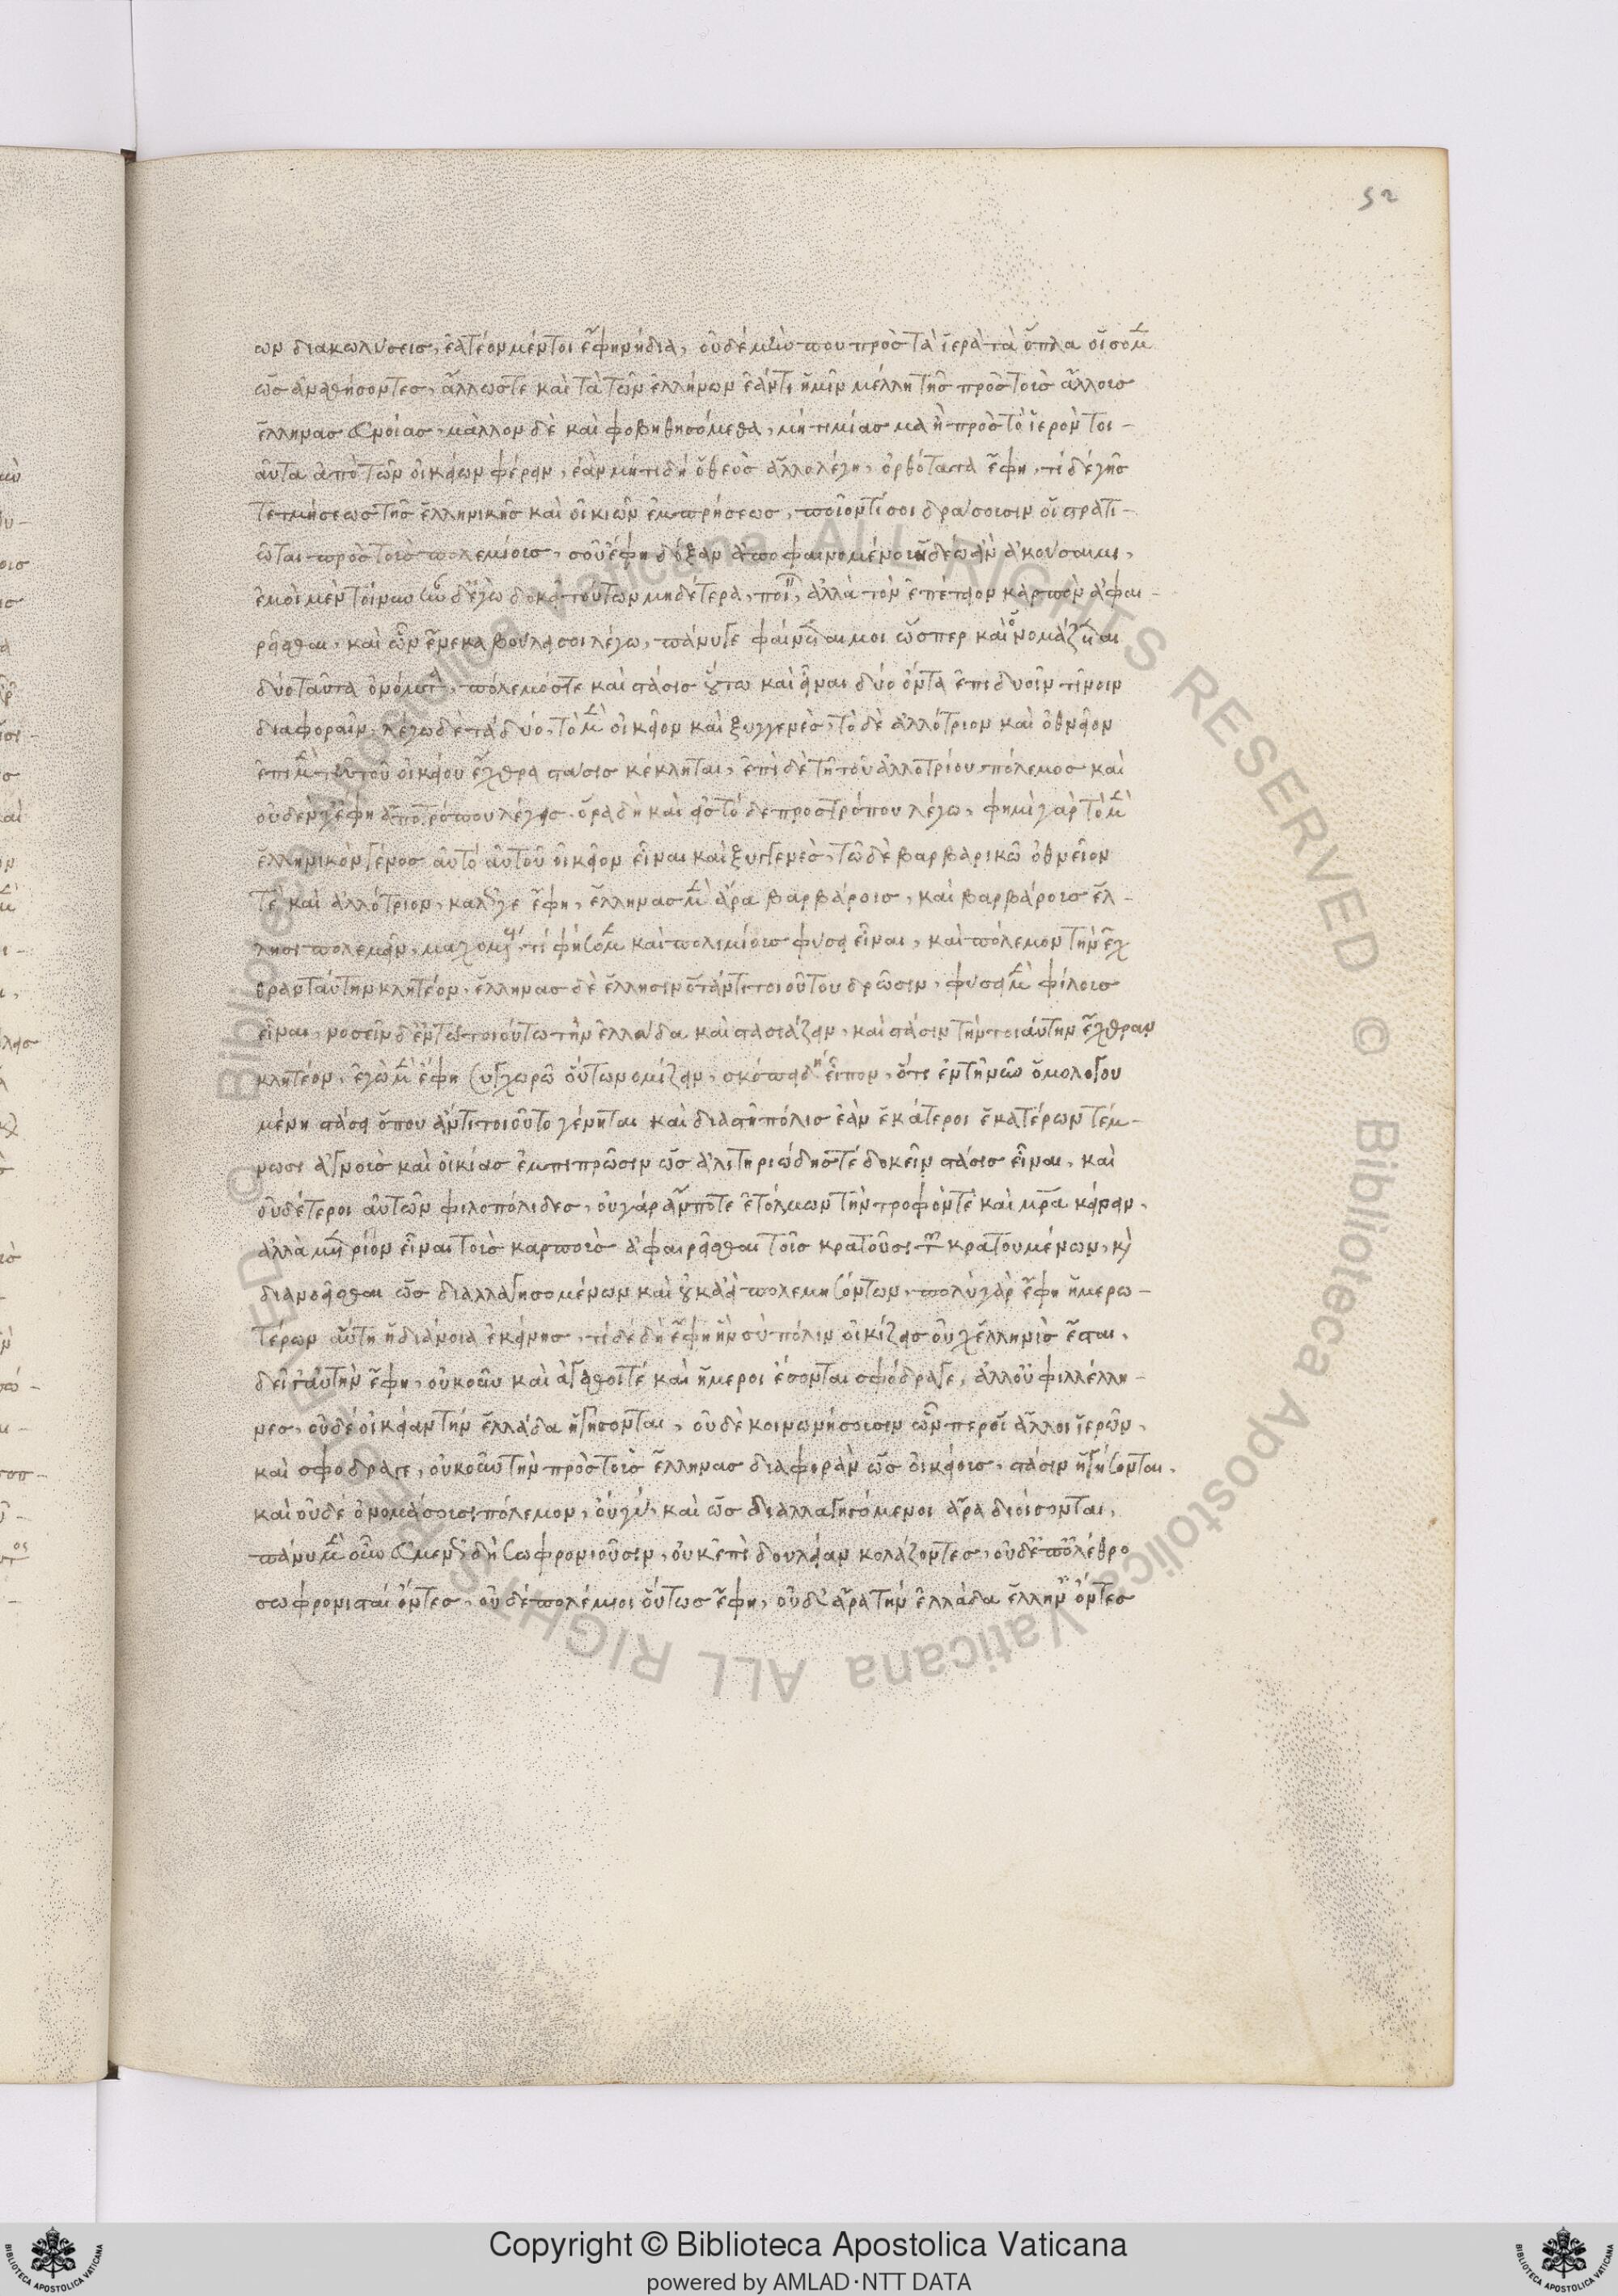 52
ων διακωλύσεισ, ἐατέον μέντοι ἔφη νηδία, οὐδὲ μήν που πρὸς τὰ ἱερὰ τὰ ὅπλα οἴσομ
ὡς ἀναθήσοντες, ἄλλως τε καὶ τὰ τῶν ἑλλήνων ἐάν τι ἡμῖν μέλλῃ τῆς πρὸς τοὺς ἄλλους
ἕλληνας εὐνοίας, μᾶλλον δὲ καὶ φοβηθησόμεθα, μή τι μίασμα ᾖ πρὸς τὸ ἱερὸν τοι-
αῦτα ἀπὸ τῶν οἰκείων φέρειν, ἐὰν μή τι δὴ ὁ θεὸς ἄλλο λέγῃ, ὀρθότατα ἔφη, τί δὲ γῆς
τε τμήσεως τῆς ἑλληνικῆς καὶ οἰκιῶν ἐμπρήσεως, ποῖόν τί σοι δράσουσιν οἱ στρατι-
ῶται πρὸς τοὺς πολεμίους, σοῦ ἔφη δόξαν ἀποφαινομένου ἡδέως ἂν ἀκούσαιμι,
ἐμοὶ μὲν τοίνυν ἦν δ' ἐγὼ δοκεῖ τούτων μηδέτερα, ποι, ἀλλὰ τὸν ἐπέτειον καρπὸν ἀφαι-
ρεῖσθαι, καὶ ὧν ἕνεκα βούλει σοι λέγω, πάνυ γε φαίνεταί μοι ὥσπερ καὶ ὀνομάζεται
δύο ταῦτα ὀνόματα, πόλεμός τε καὶ στάσις οὕτω καὶ εἶναι δύο ὄντα ἐπὶ δυοῖν τινοιν
διαφοραῖν, λέγω δὲ τὰ δύο, τὸ μὲν οἰκεῖον καὶ ξυγγενὲς, τὸ δὲ ἀλλότριον καὶ ὀθνεῖον
ἐπὶ μὲν τῇ τοῦ οἰκείου ἔχθρα στάσις κέκληται, ἐπὶ δὲ τῇ τοῦ ἀλλοτρίου πόλεμος καὶ
οὐδέν γε ἔφη ἀπὸ τρόπου λέγεις. ὅρα δὴ καὶ εἰ τόδε πρὸς τρόπου λέγω, φημὶ γὰρ τὸ μὲν
ἑλληνικὸν γένος αὐτὸ αὑτοῦ οἰκεῖον εἶναι καὶ ξυγγενὲς, τῷ δὲ βαρβαρικῷ ὀθνεῖον
τὲ καὶ ἀλλότριον, καλῶς γε ἔφη, ἕλληνας μὲν ἄρα βαρβάροις, καὶ βαρβάρους ἕλ-
λησι πολεμεῖν, μαχομένους τε φήσομεν καὶ πολεμίους φύσει εἶναι, καὶ πόλεμον τὴν ἔχ
θραν ταύτην κλητέον, ἕλληνας δὲ ἕλλησιν ὅταν τι τοιοῦτου δρῶσιν, φύσει μὲν φίλους
εἶναι, νοσεῖν δ' ἐν τῷ τοιούτω τὴν ἑλλάδα καὶ στασιάζειν, καὶ στάσιν τὴν τοιαύτην ἔχθραν
κλητέον, ἐγὼ μὲν ἔφη συγχωρῶ οὕτω νομίζειν, σκόπει δὴ εἶπον, ὅτι ἐν τῇ νῦν ὁμολογου
μένῃ στάσει ὅπου ἄν τι τοιοῦτο γένηται καὶ διαστῇ πόλις ἐὰν ἑκάτεροι ἑκατέρων τέμ-
νωσι ἀγροὺς καὶ οἰκίας ἐμπιπρῶσιν ὡς ἀλιτηριώδης τὲ δοκεῖν στάσις εἶναι, καὶ
οὐδέτεροι αὐτῶν φιλοπόλιδες, οὐ γὰρ ἄν ποτε ἐτόλμων τὴν τροφόν τε καὶ μρα κείρειν,
ἀλλὰ μέτριον εἶναι τοὺς καρποὺς ἀφαιρεῖσθαι τοῖς κρατοῦσι τῶν κρατουμένων, καὶ
διανοεῖσθαι ὡς διαλλαγησομένων καὶ οὐκ ἀεὶ πολεμησόντων, πολὺ γὰρ ἔφη ἡμερω-
τέρων αὕτη ἡ διάνοια ἐκείνης, τί δὲ δὴ ἔφη ἣν σὺ πόλιν οἰκίζεις οὐχ ἑλληνὶς ἔσται,
δεῖ γ' αὐτὴν ἔφη, οὐκοῦν καὶ ἀγαθοί τε καὶ ἥμεροι ἔσονται σφόδρα γε, ἀλλ' οὐ φιλέλλη-
νες, οὐδὲ οἰκείαν τὴν ἑλλάδα ἡγήσονται, οὐδὲ κοινωνήσουσιν ὧνπερ οἱ ἄλλοι ἱερῶν,
καὶ σφόδρα γε, οὐκοῦν τὴν πρὸς τοὺς ἕλληνας διαφορὰν ὡς οἰκείους, στάσιν ἡγήσονται,
καὶ οὐδὲ ὀνομάσουσι πόλεμον, οὐ γάρ, καὶ ὡς διαλλαγησόμενοι ἄρα διοίσονται,
πάνυ μὲν οὖν εὐμενῶς δὴ σωφρονιοῦσιν, οὐκ ἐπὶ δουλείαν κολάζοντες, οὐδ' ἐπ' ὀλέθρῳ
σωφρονισταὶ ὄντες, οὐδὲ πολέμιοι οὕτως ἔφη, οὐδ' ἄρα τὴν ἑλλάδα ἕλληνες ὄντες
Copyright © Biblioteca Apostolica Vaticana
powered by AMLAD·NTT DATA